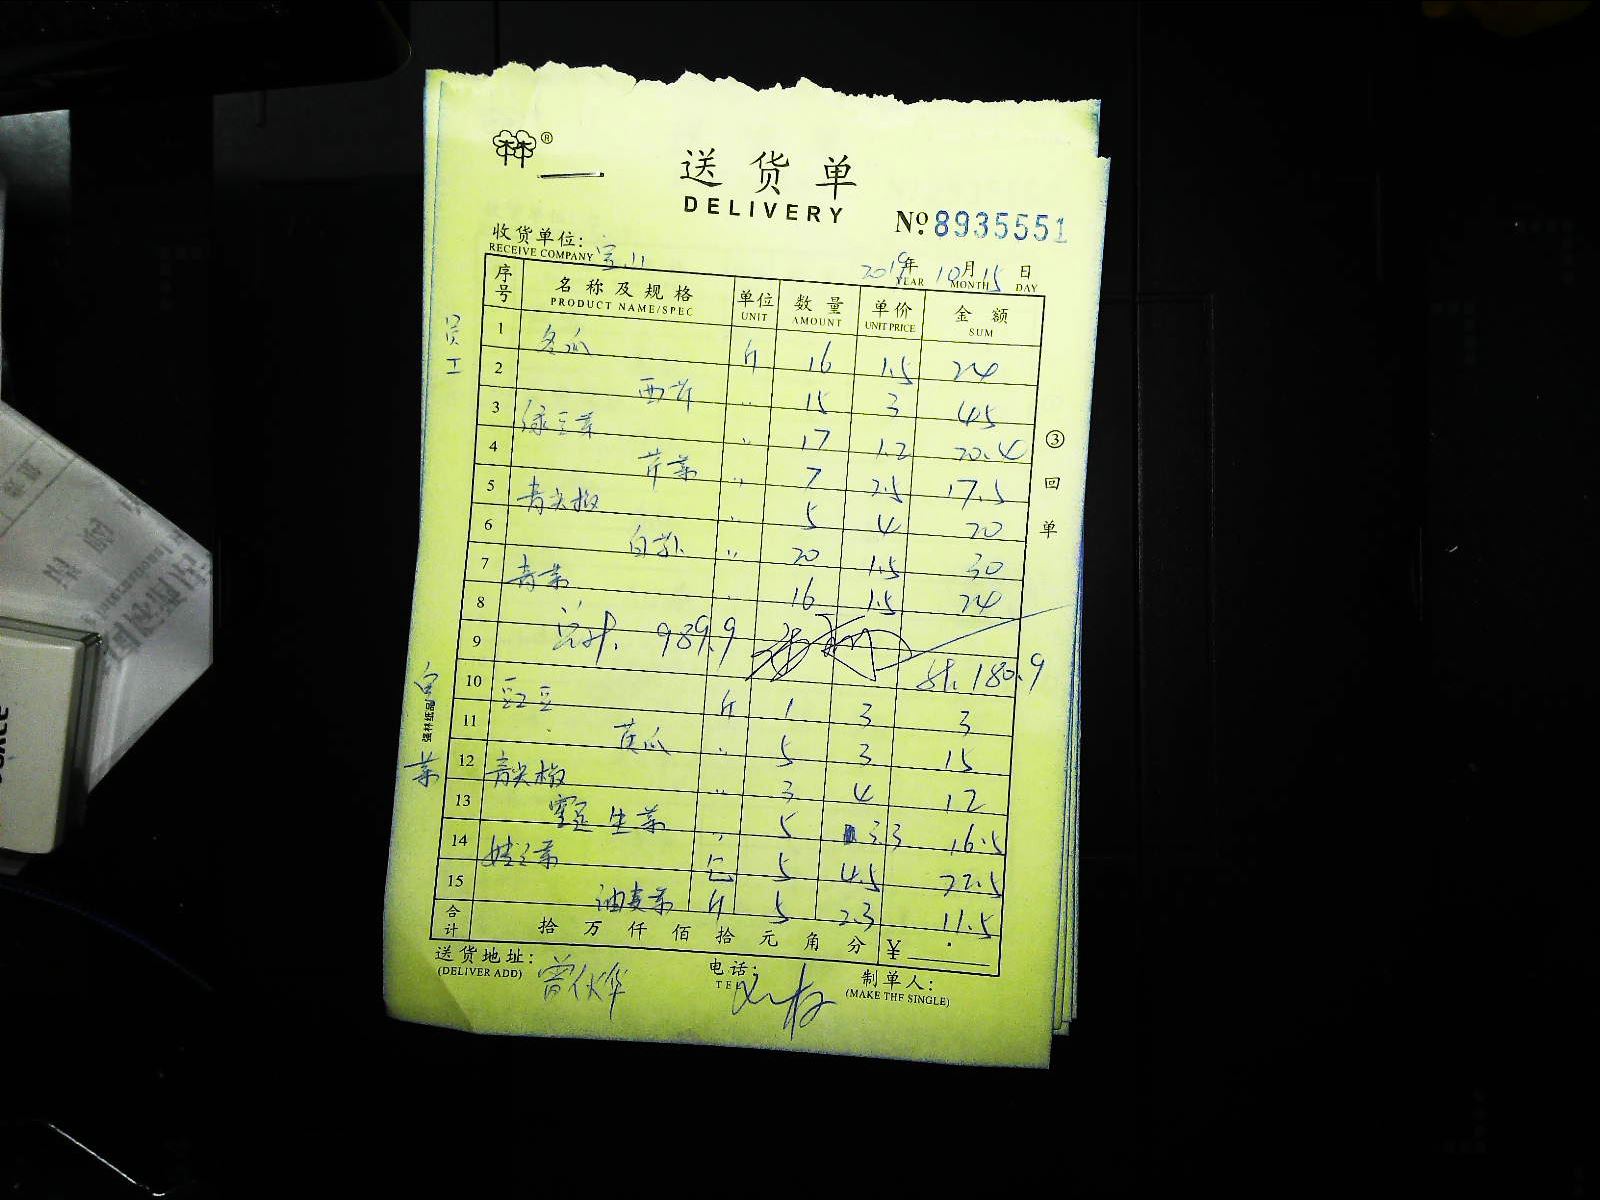 送货单
DELIVERY
No: 8935551
收货单位:
RECEIVE COMPANY
2019年 10月 15日
YEAR MONTH DAY
序号 名称及规格 单位 数量 单价 金额
PRODUCT NAME/SPEC UNIT AMOUNT UNIT PRICE SUM
员工
1 冬瓜 斤 16 1.5 24
2 西芹 〃 15 3 45
3 绿豆芽 〃 17 1.2 20.4
4 芹菜 〃 7 2.5 17.5
5 青尖椒 〃 5 4 20
6 白 〃 20 1.5 30
7 青菜 〃 16 1.5 24
8 总计. 989.9
9 计. 180.9
10 豇豆 斤 1 3 3
11 黄瓜 〃 5 3 15
12 青尖椒 〃 3 4 12
13 生菜 〃 5 3.3 16.5
14 娃娃菜 包 5 4.5 22.5
15 油麦菜 斤 5 2.3 11.5
合计 拾 万 仟 佰 拾 元 角 分 ¥
送货地址: 电话: 制单人:
(DELIVER ADD) TEL (MAKE THE SINGLE)
③回单
强林纸品